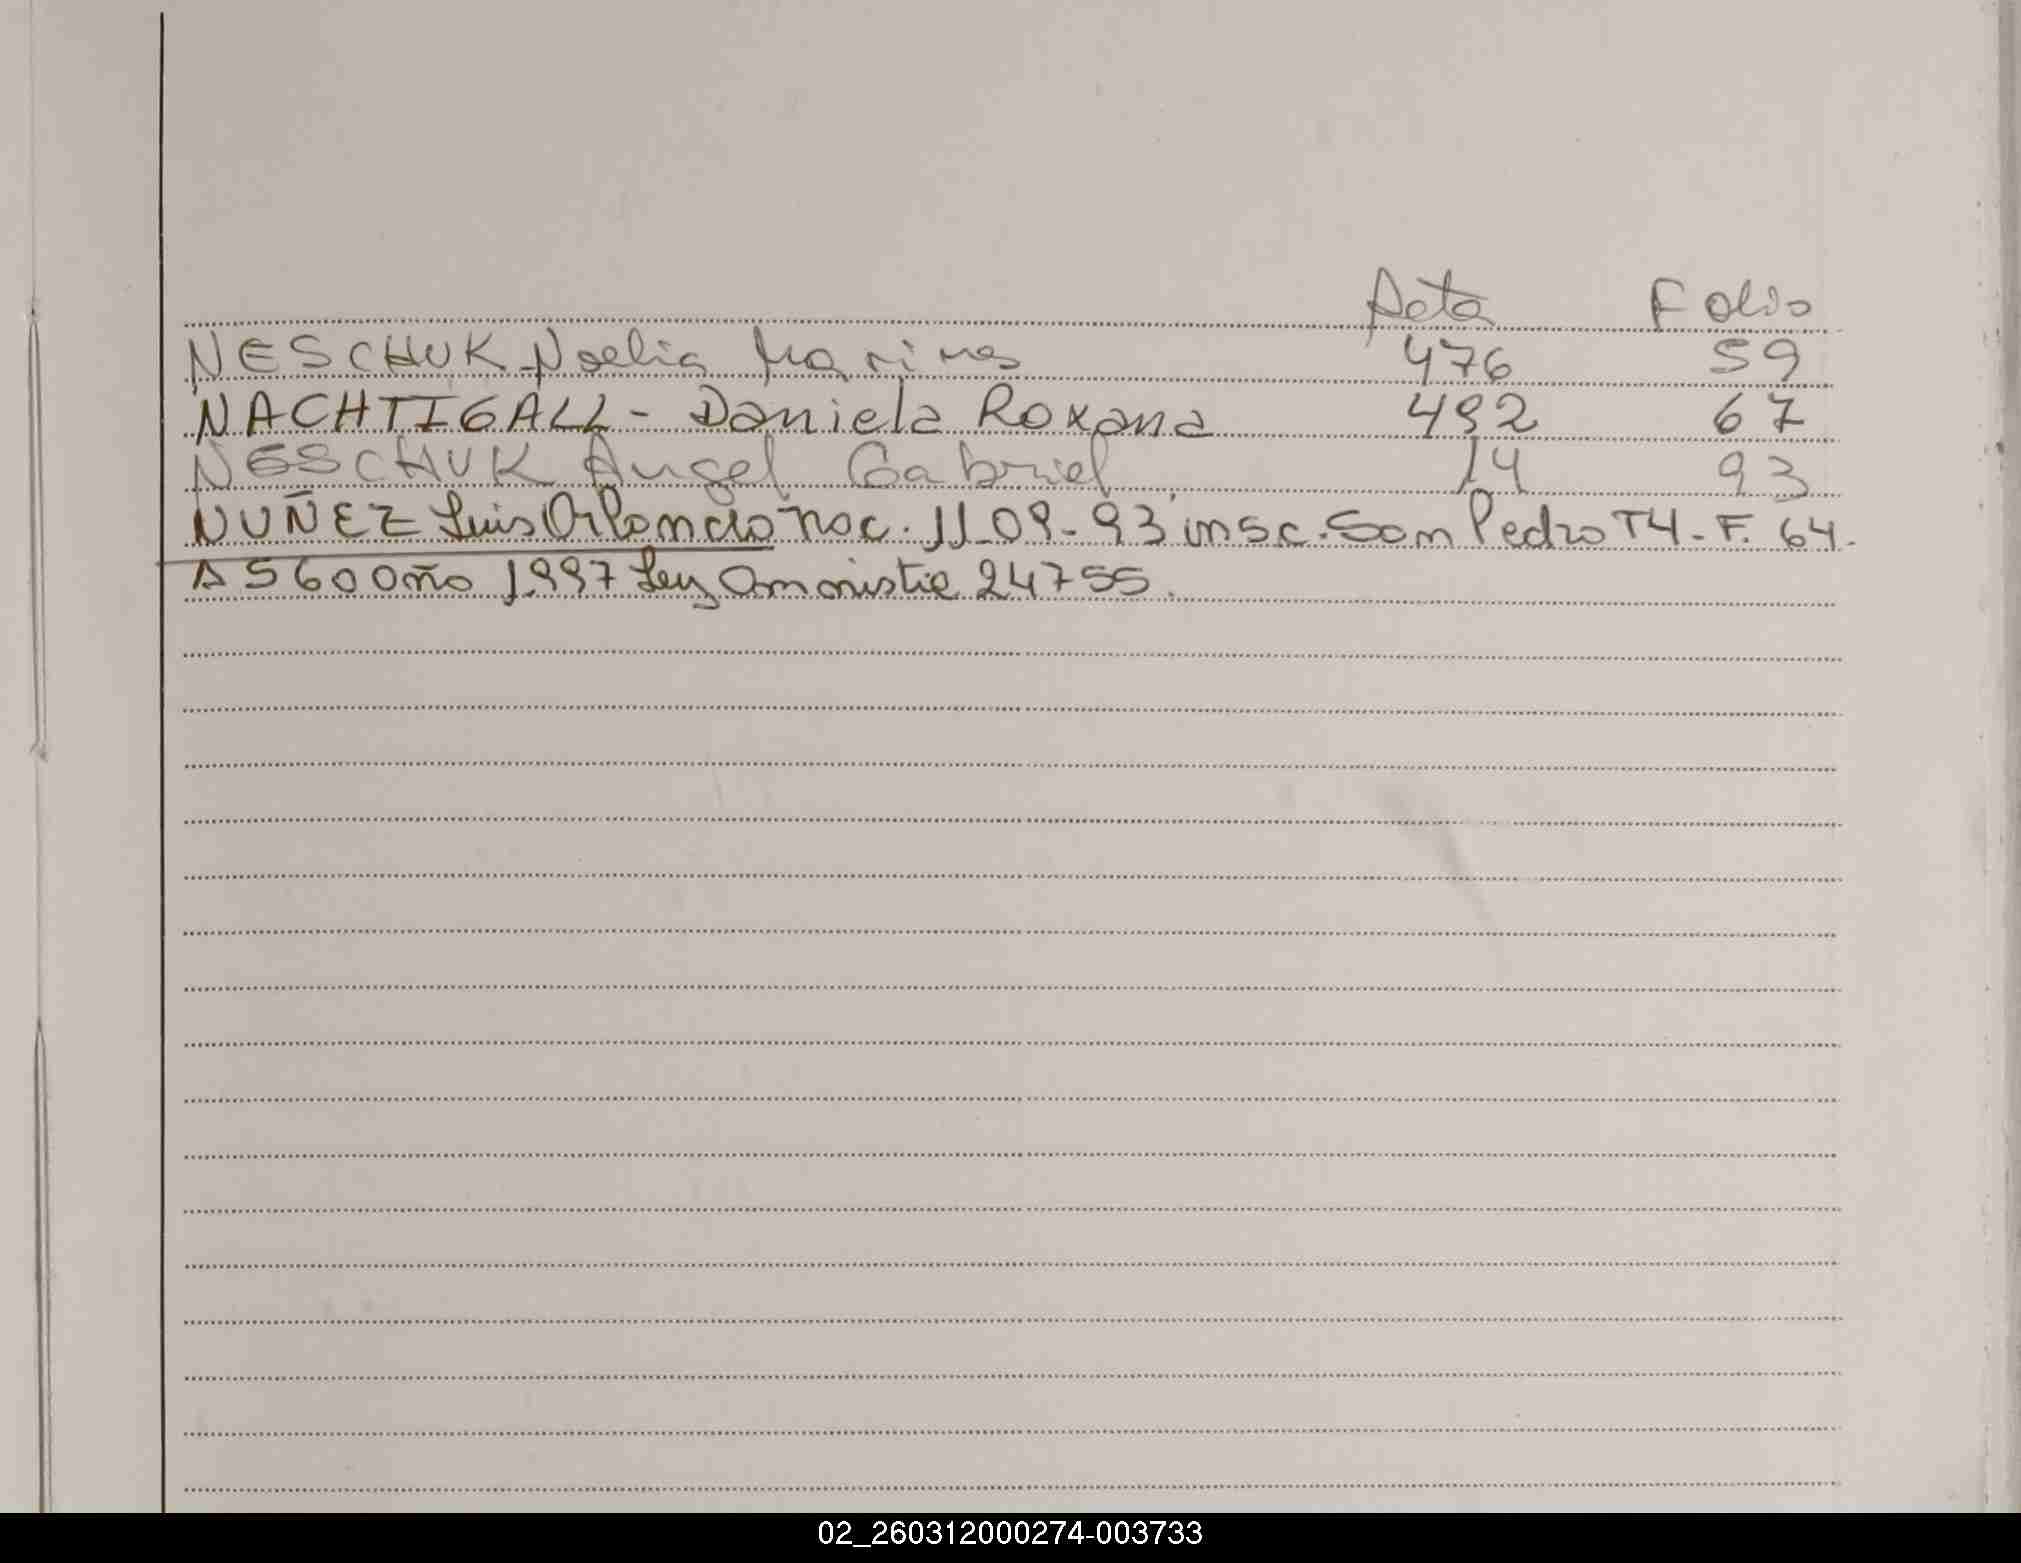 Acta Folio
NESCHUK Noelia Marines 476 59
NACHTIGALL - Daniela Roxana 492 67
NESCHUK Angel Gabriel 14 93
NUÑEZ Luis Orlando nac. 11-09-93 insc. San Pedro T4-F. 64-
A 560 año 1997 Ley Amnistia 24755.
02_260312000274-003733